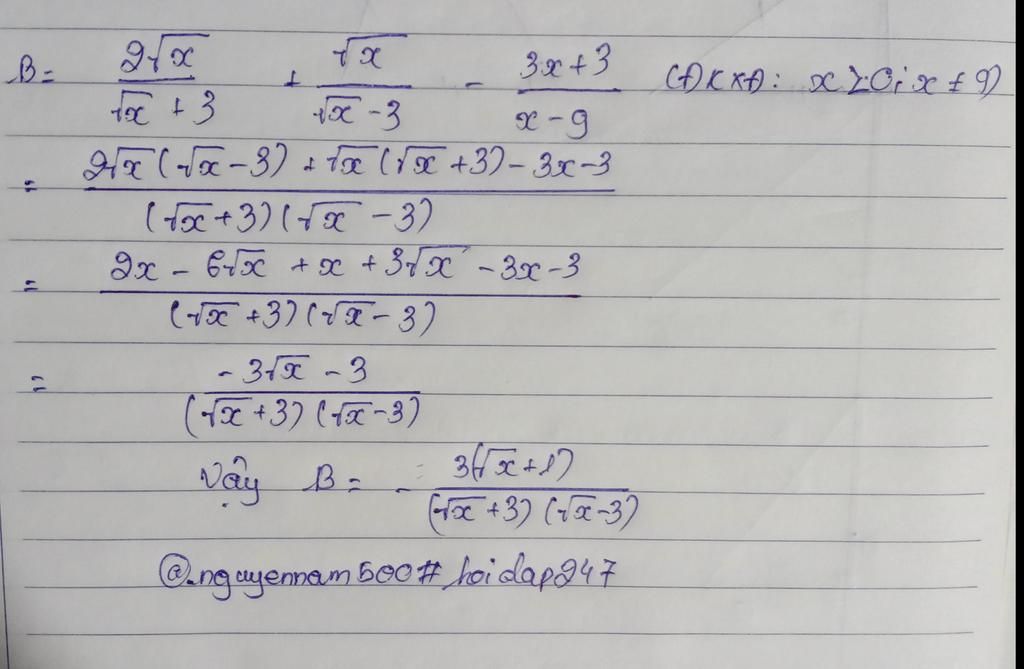 B = 2√x / (√x + 3) + √x / (√x - 3) - (3x + 3) / (x - 9) (ĐKXĐ: x ≥ 0; x ≠ 9)
= (2√x(√x - 3) + √x(√x + 3) - 3x - 3) / ((√x + 3)(√x - 3))
= (2x - 6√x + x + 3√x - 3x - 3) / ((√x + 3)(√x - 3))
= (-3√x - 3) / ((√x + 3)(√x - 3))
Vậy B = - 3(√x + 1) / ((√x + 3)(√x - 3))
@nguyennam500#hoidap247